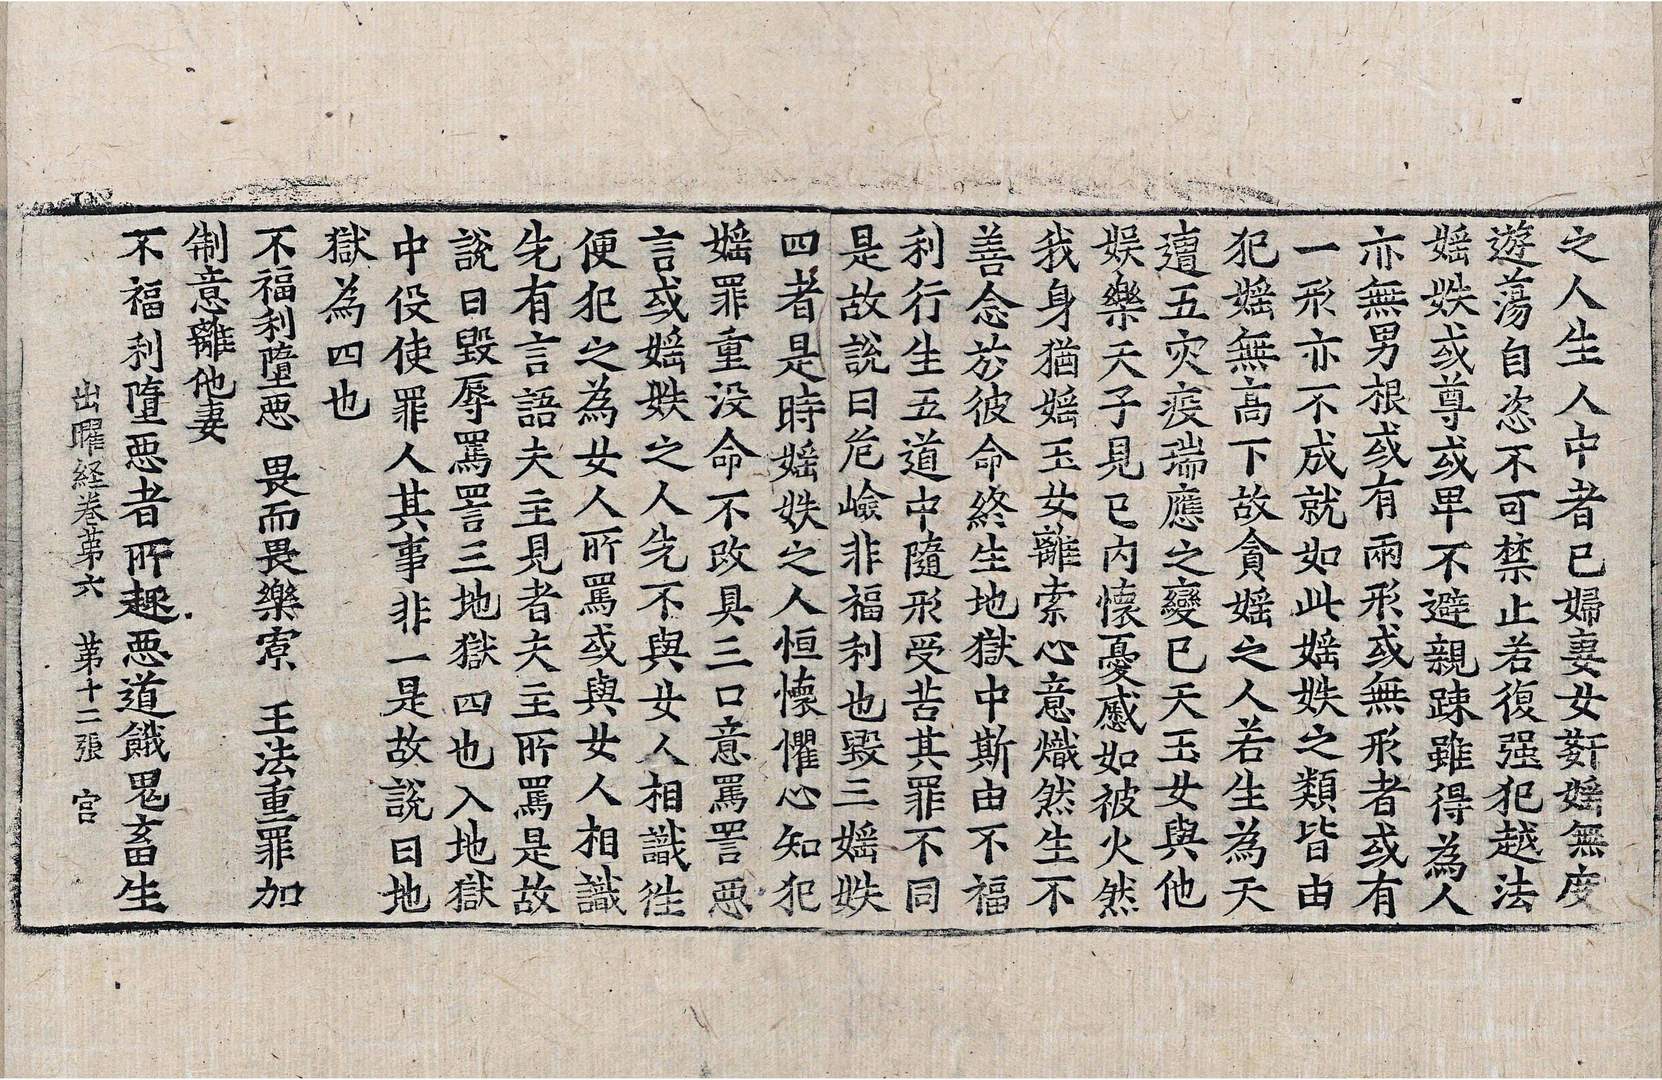 之人生人中者已婦妻女姧婬無度
遊蕩自恣不可禁止若復强犯越法
婬妷或尊或卑不避親踈雖得為人
亦無男根或有兩形或無形者或有
一形亦不成就如此婬妷之類皆由
犯婬無高下故貪婬之人若生為天
遭五灾疫瑞應之變已天玉女與他
娱樂天子見已內懷憂慼如被火然
我身猶婬玉女離索心意熾然生不
善念於彼命終生地獄中斯由不福
利行生五道中隨形受苦其罪不同
是故說曰危嶮非福利也毀三婬妷
四者是時婬妷之人恒懷懼心知犯
婬罪重没命不改具三口意罵詈惡
言或婬妷之人先不與女人相識往
便犯之為女人所罵或與女人相識
先有言語夫主見者夫主所罵是故
說曰毀辱罵詈三地獄四也入地獄
中役使罪人其事非一是故說曰地
獄為四也
不福利墮惡 畏而畏樂寮 王法重罪加
制意離他妻
不福利墮惡者所趣惡道餓鬼畜生
出曜経卷苐六 苐十二張 宫